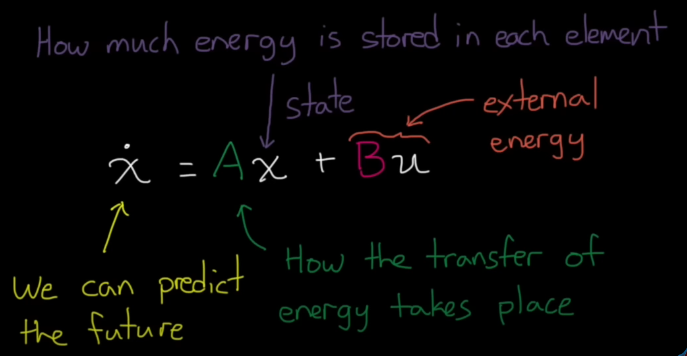 How much energy is stored in each element
state
external
energy
ẋ = Ax + Bu
We can predict
the future
How the transfer of
energy takes place